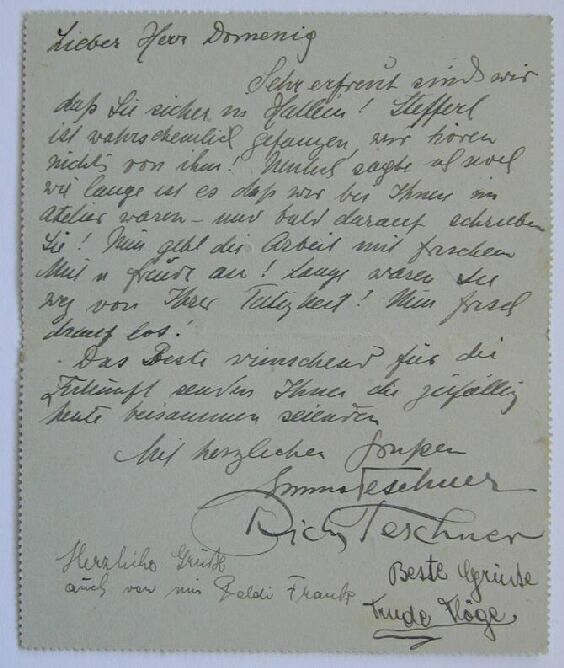 Lieber Herr Domenig
Sehr erfreut sind wir
daß Sie sicher in Hallein! Stefferl
ist wahrscheinlich gefangen, wir hören
nichts von ihm! Neulich sagte ich noch
wie lange ist es daß wir bei Ihnen im
Atelier waren – und bald darauf schreiben
Sie! Nun geht die Arbeit mit frischem
Mut u freude an! Lange waren Sie
weg von Ihrer Tätigkeit! Nun frisch
drauf los!
Das Beste wünschend für die
Zukunft senden Ihnen die zufällig
heute beisammen seienden
Mit herzlichen Grüßen
Emma Teschner
Rich Teschner
Herzliche Grüße
auch von mir Poldi Frank
Beste Grüße
Trude